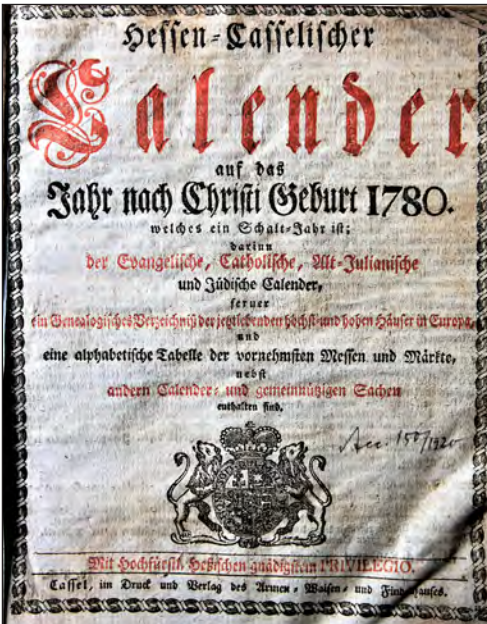 Hessen-Casselischer
Calender
auf das
Jahr nach Christi Geburt 1780.
welches ein Schalt-Jahr ist;
darinn
der Evangelische, Catholische, Alt-Julianische
und Jüdische Calender,
ferner
ein Genealogisches Verzeichniß der jetztlebenden höchst- und hohen Häuser in Europa,
und
eine alphabetische Tabelle der vornehmsten Messen und Märkte,
nebst
andern Calender- und gemeinnützigen Sachen
enthalten sind.
Acc. 150/1920
Mit Hochfürstl. Heßischen gnädigstem PRIVILEGIO.
Cassel, im Druck und Verlag des Armen- Waisen- und Findelhauses.